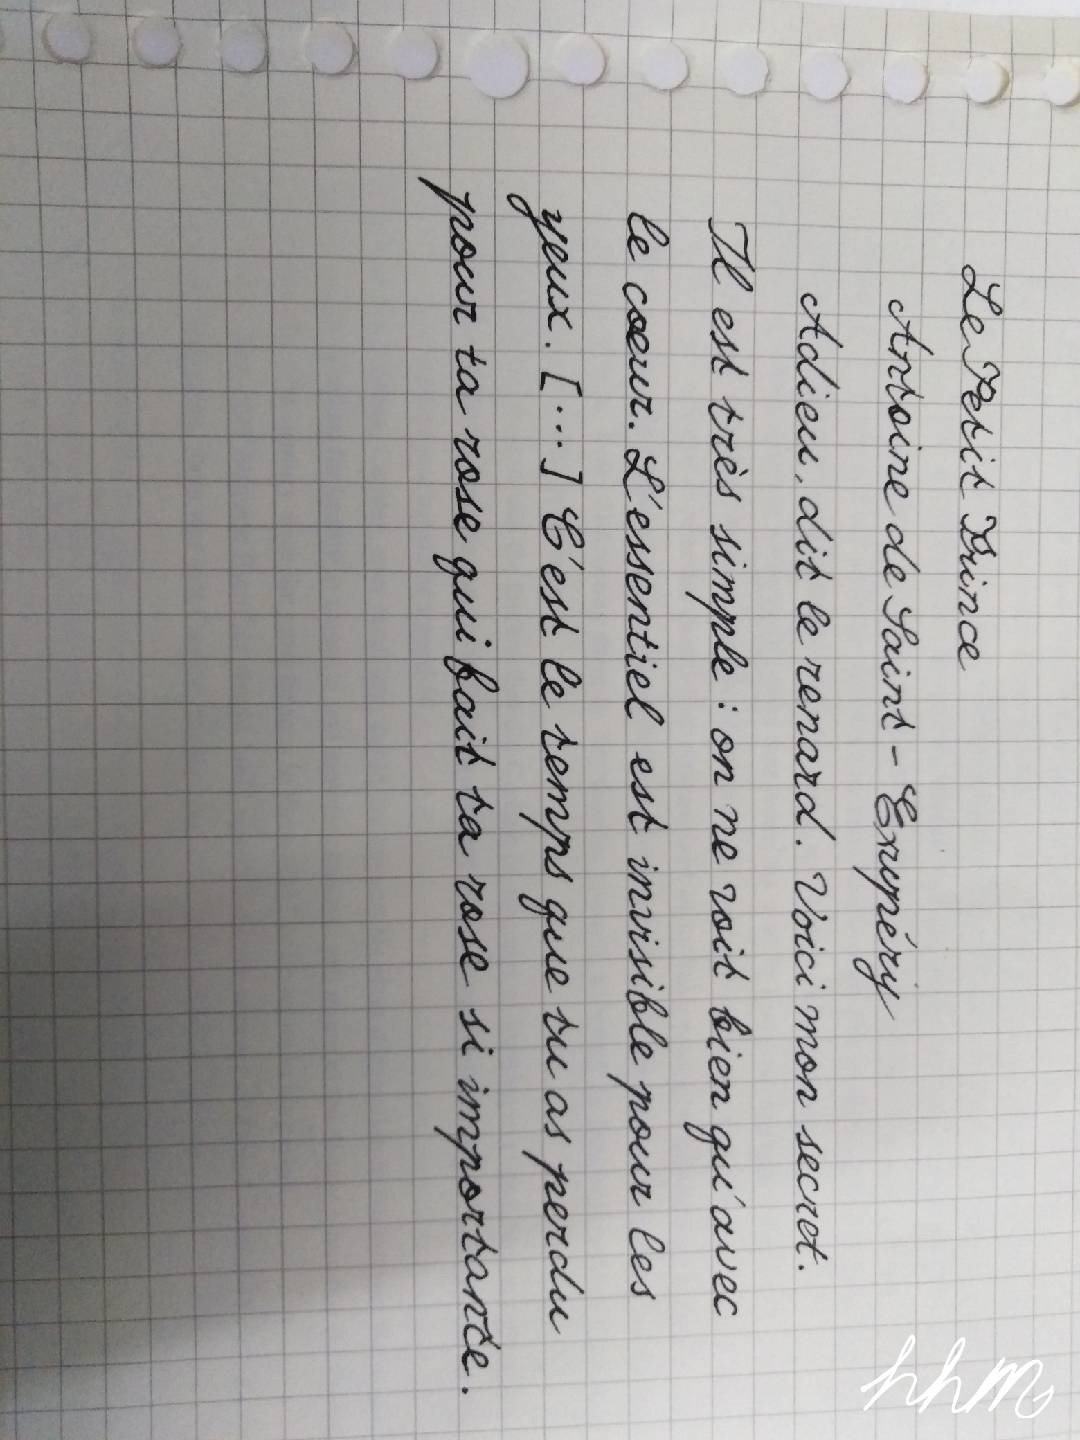 Le Petit Prince
Antoine de Saint-Exupéry
Adieu, dit le renard. Voici mon secret.
Il est très simple : on ne voit bien qu'avec
le cœur. L'essentiel est invisible pour les
yeux. [...] C'est le temps que tu as perdu
pour ta rose qui fait ta rose si importante.
hhm